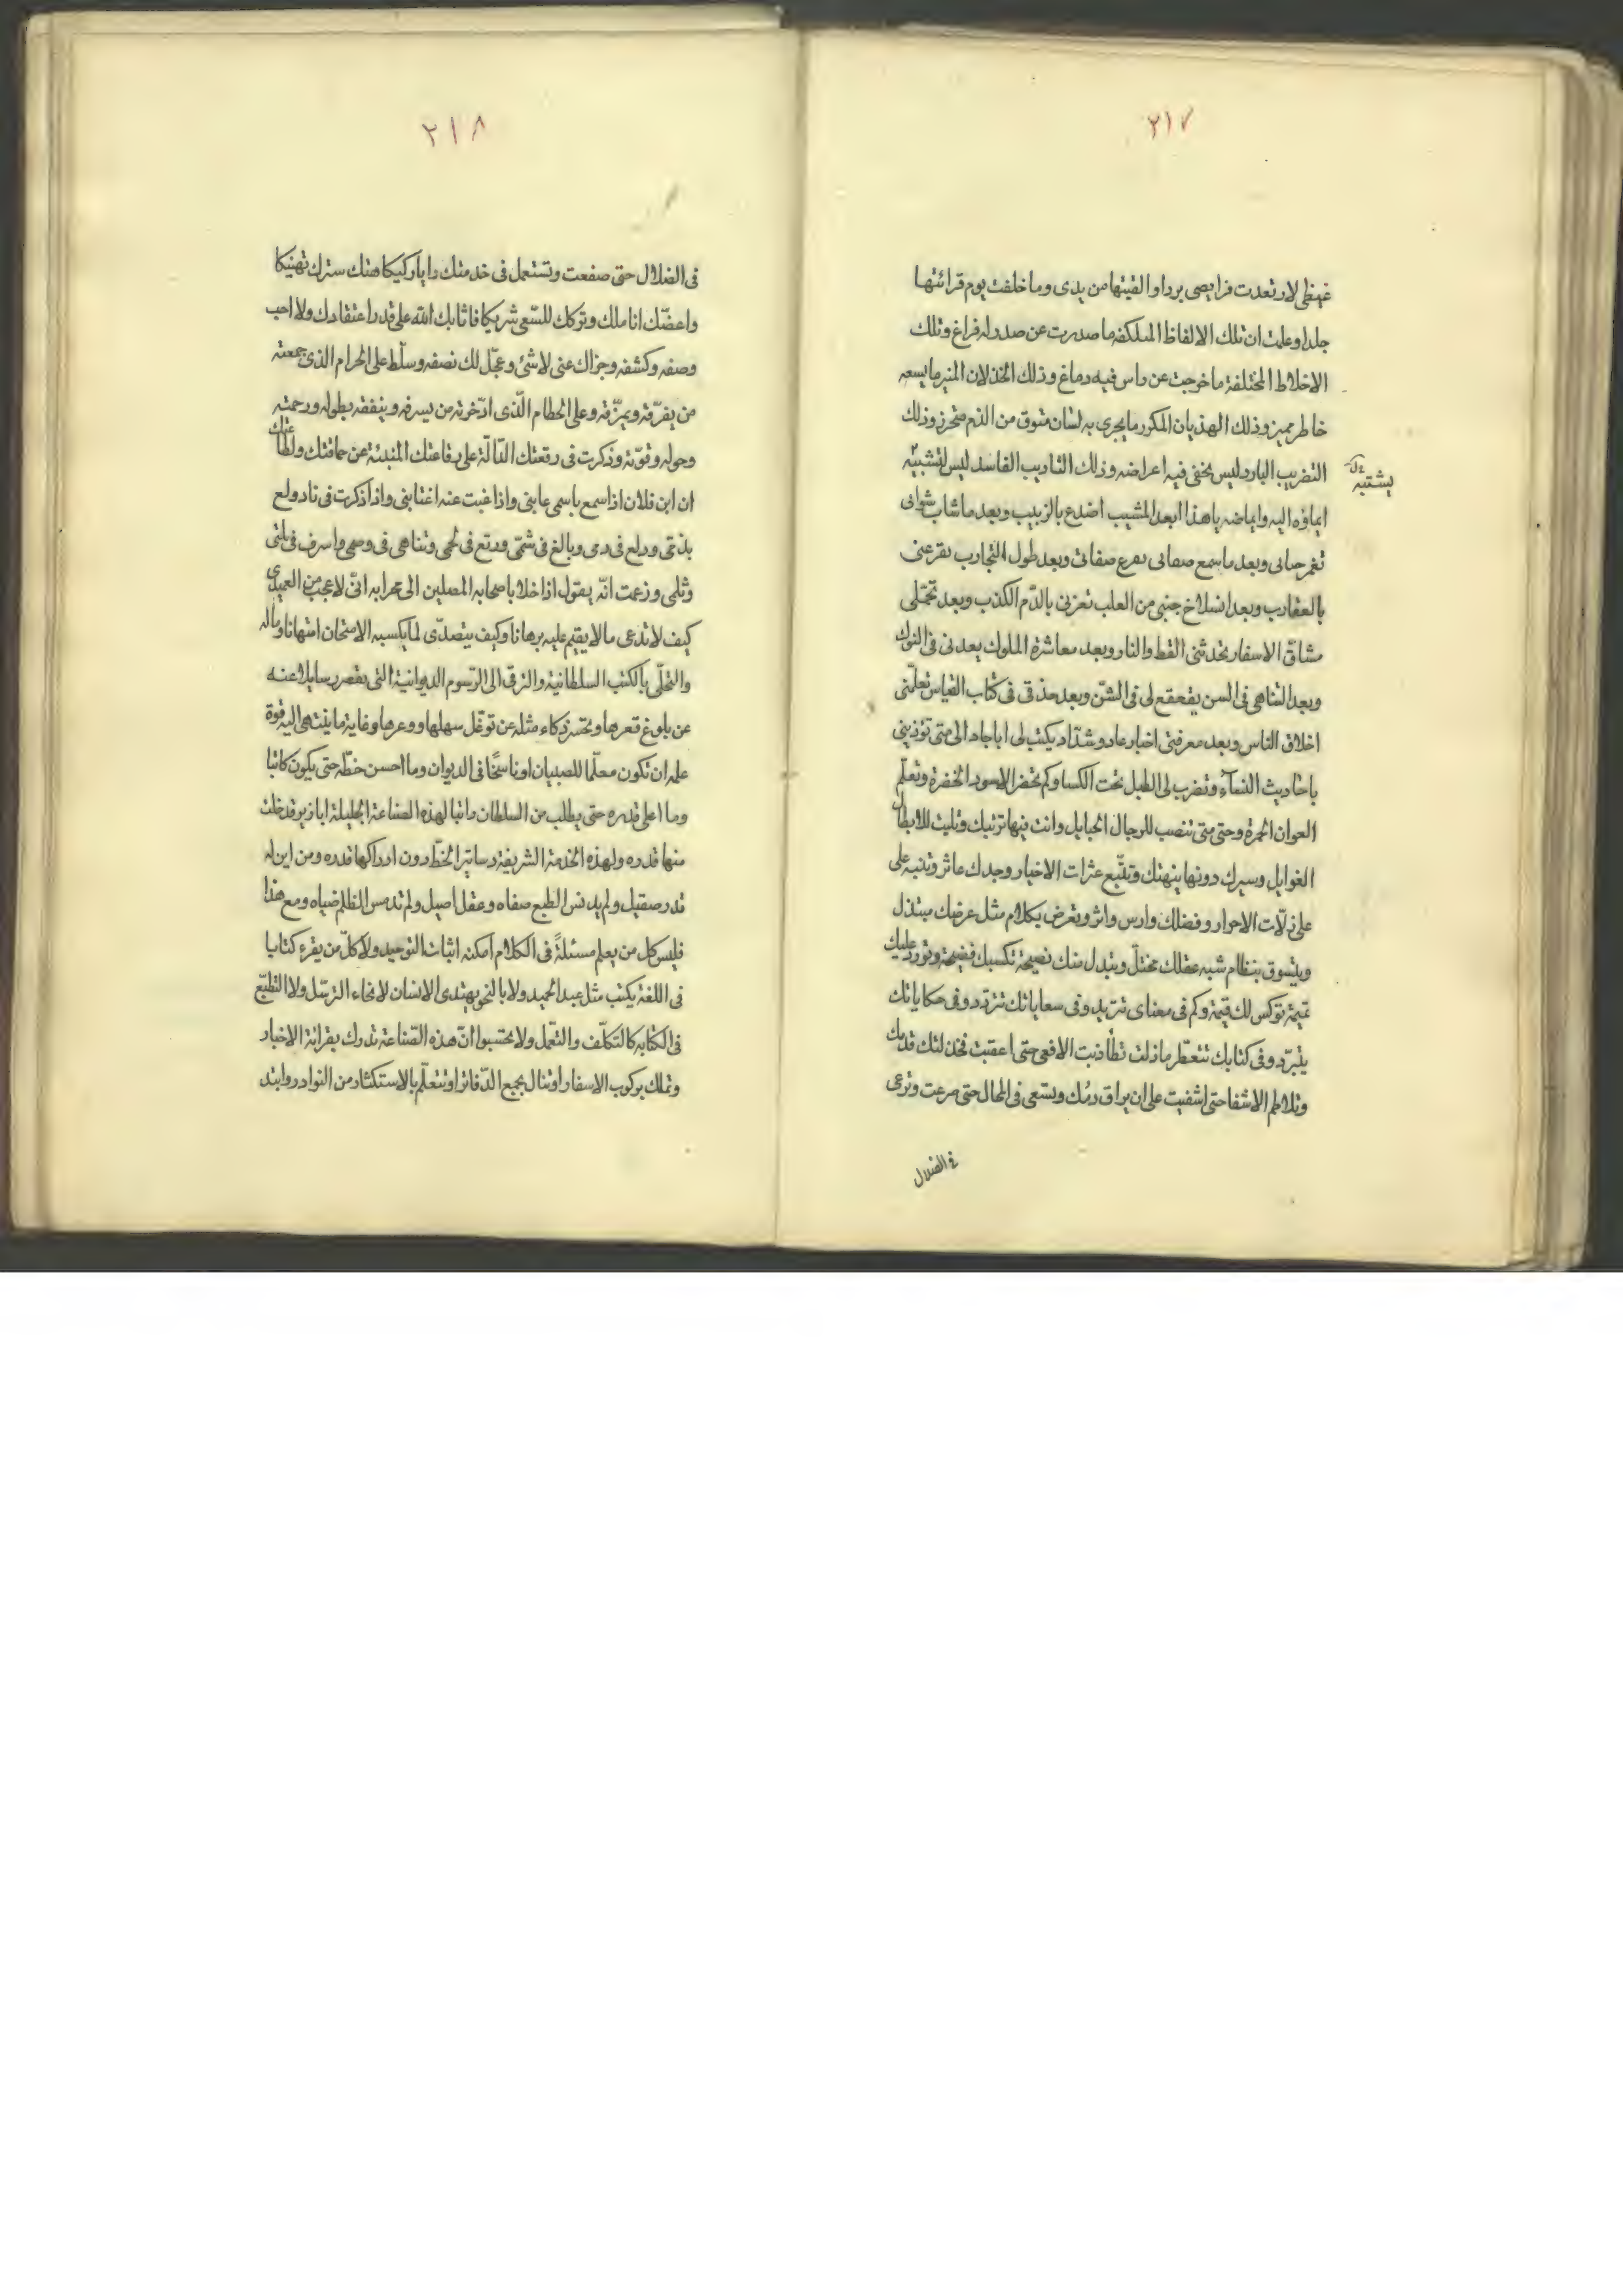 ٢١٧
غيظى لارتعدت فرايصى بردا والقيتها من يدى وما خلفت يوم قرائتها
جلدا وعلمت ان تلك الالفاظ ما صدرت عن صدر له فراغ وتلك
الاخلاط المختلفة ما خرجت عن راس فيه دماغ وذلك الخذلان ما يسعه
خاطر مميز وذلك الهذيان المكرر ما يجرى به لسان متوق من الذم متحرز وذلك
التضريب البارد ليس يخفى فيه اعراضه وذلك التاديب الفاسد ليس يشبه
يشتبه
ايماؤه اليه وايماضه يا هذا ابعد المشيب اضدع بالزبيب وبعد ما شاب شواتى
تغمز وبعد ما سمع صفاتى وبعد طول التجارب تقرعنى
بالعقارب وبعد انسلاخ جنبى من تعزنى بالدم الكذب وبعد تحملى
مشاق الاسفار تحدثنى القط والنار وبعد معاشرة الملوك يعدنى فى النوك
وبعد التناهى فى السن يقعقع لى فى الشن وبعد حذقى فى كتاب القياس تعلمنى
اخلاق الناس وبعد معرفتى اخبار عاد وشداد يكتب لى اباجاد الى متى تؤذينى
باحاديث النساء وتضرب لى الطبل تحت الكسا وكم تحضر الاسود الخضرة وتعلم
العوان الخمرة وحتى متى تنصب للرجال الحبايل وانت فيها ترتبك وتليت للابطال
الغوايل وسيرك دونها ينهتك وتتبع عثرات الاخيار وجدك عاثر وتنبه على
على زلات الاحرار وفضلك دارس واثر وتعرض بكلام مثل عرضك مبتذل
ويتسوق بنظام شبه عقلك مختل ويتبدل منك نصيحة تكسبك فضيحة وتورد عليك
تميمة توكس لك قيمة وكم فى معناى تتزيد وفى سعاياتك تتردد وفى حكاياتك
يتبرد وفى كتابك تتعطر ما زلت تطأ ذنب الافعى حتى اعقبت فخذلتك قدمك
وتلاطم الاشفا حتى اشفيت على ان يراق دمك وتسعى فى المحال حتى صرعت وترعى
فى الضلال
٢١٨
فى الضلال حتى صفعت وتستعمل فى خدمتك رايا ركيكا هتك سترك تهتيكا
واعضك انا ملك وتركك للسعى شريكا فاثابك الله على قدر اعتقادك ولا احب
وصفه وكشفه وجزاك عنى لا شئ وعجل لك نصفه وسلط على الحرام الذى جمعته
من يفرقه ويمزقه وعلى الحطام الذى ادخرته من يسرفه وينفقه بطوله ورحمته
وحوله وقوته وذكرت فى رقعتك الدالة على رقاعتك المنبئة عن حماقتك
ان ابن فلان اذا سمع باسمى عابنى واذا غبت عنه اغتابنى واذا ذكرت فى ناد ولع
بذمى وولع فى دمى وبالغ فى شتمى ورتع فى لحمى وتناهى فى وصمى واسرف فى ثلبى
وثلمى وزعمت انه يقول اذا خلا باصحابه المصلين الى محرابه انى لاعجب من العميدى
كيف لا تدعى ما لا يقيم عليه برهانا وكيف يتصدى لما يكسبه الامتحان امتهانا وماله
والتحلى بالكتب السلطانية والترقى الى الرسوم الديوانية التى يقصر رسايلا عنه
عن بلوغ قعرها ويحسر ذكاء مثله عن توغل سهلها ووعرها وغاية ما ينتهى اليه قوة
علمه ان تكون معلما للصبيان او ناسخا فى الديوان وما احسن خطه حتى يكون كاتبا
وما اعلى قدره حتى يطلب من السلطان راتبا لهذه الصناعة الجليلة ابازير قد خلت
منها قدره ولهذه الخدمة الشريفة دساتير انحط دون ادراكها قدره ومن اين له
قدر صقيل ولم يدنس الطبع صفاه وعقل اصيل ولم تدمس الظلم ضياه ومع هذا
فليس كل من يعلم مسئلة فى الكلام امكنه اثبات التوحيد ولا كل من يقرء كتابا
فى اللغة يكتب مثل عبد الحميد ولا بالنحو يهتدى الانسان لانحاء الترسل ولا التطبع
فى الكتابه كالتكلف والتعمل ولا تحتسبوا ان هذه الصناعة تدرك بقرائة الاخبار
وتملك بركوب الاسفار او تنال بجمع الدفاتر او تتعلم بالاستكثار من النوادر وابتد